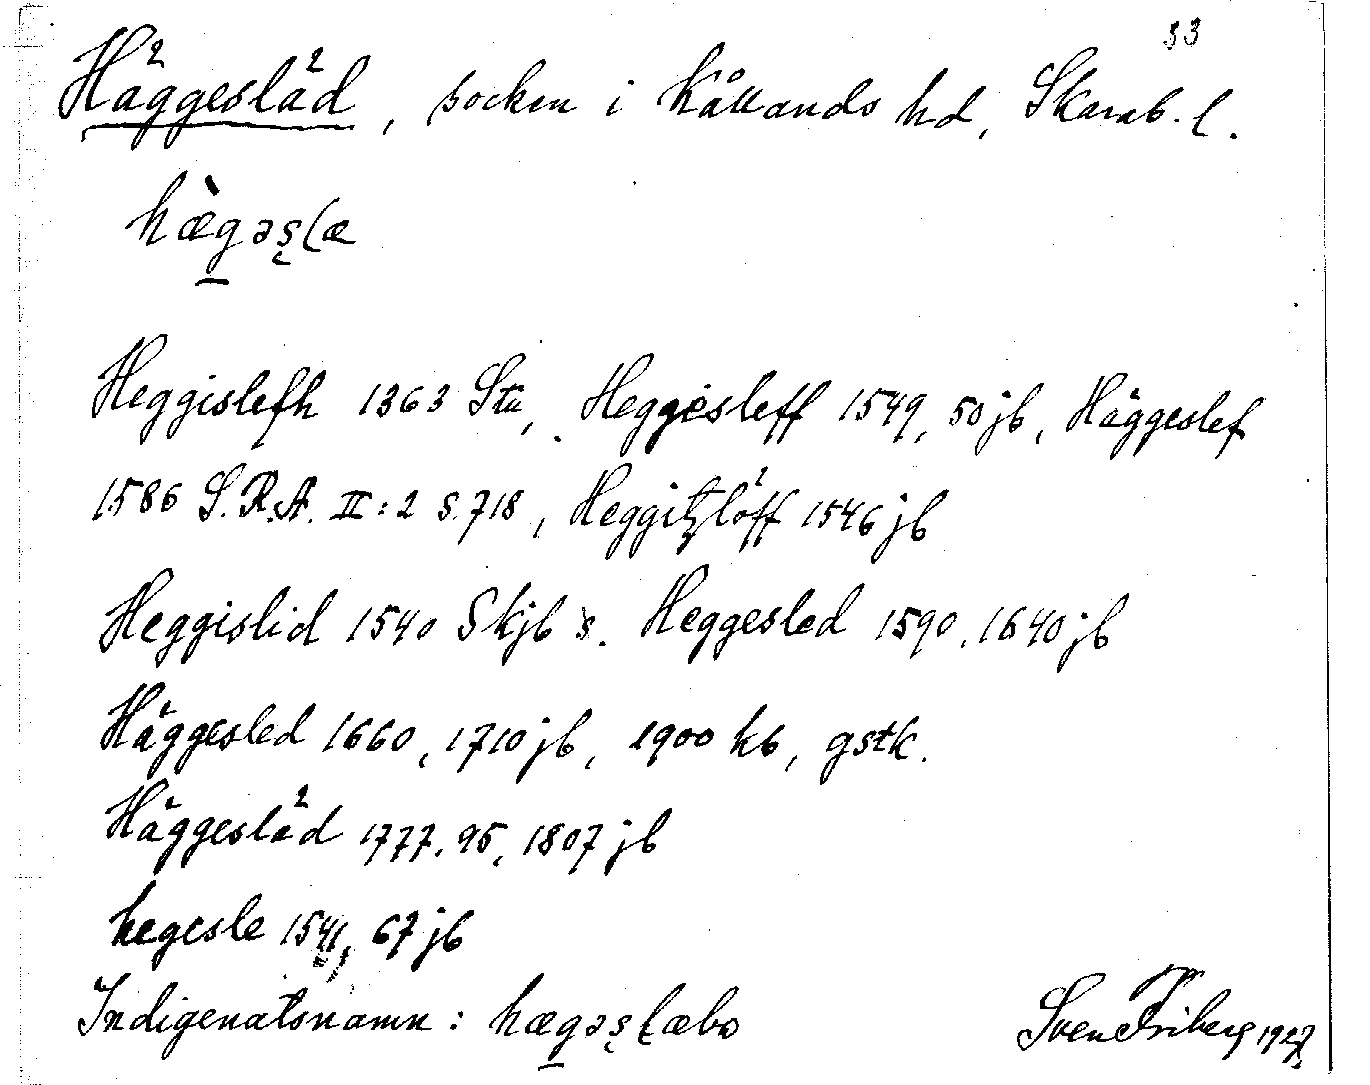 33
Häggesläd, socken i Kållands hd, Skarab. l.
hæ̀gəsʟæ
Heggislefh 1363 Stu, Heggesleff 1549, 50 jb, Häggeslef
1586 S.R.A. II:2 s. 718, Heggitzlöff 1546 jb
Heggislid 1540 Skjb s. Heggesled 1590, 1640 jb
Häggesled 1660, 1710 jb, 1900 kb, gstk.
Häggesläd 1777, 95, 1807 jb
hegesle 1541, 67 jb
Indigenatsnamn: hægəsʟæbo
Sven Friberg 1927